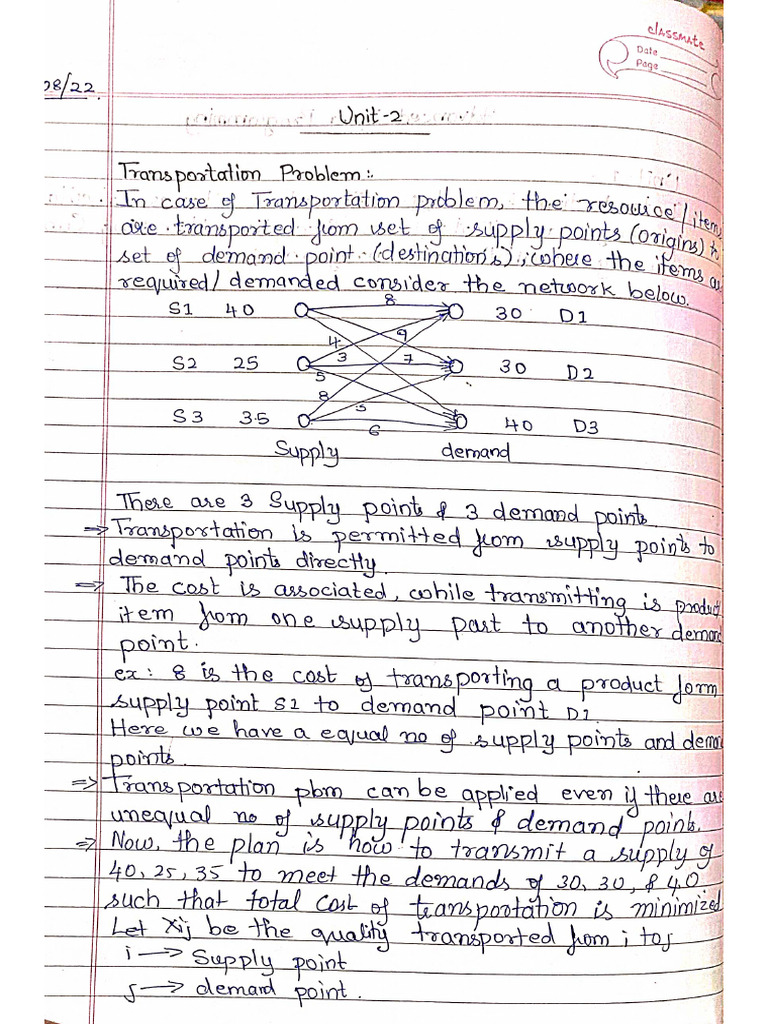 classmate
Date
Page
08/22
Unit-2
Transportation Problem:
In case of Transportation problem, the resource/item
are transported from set of supply points (origins) to
set of demand point (destinations), where the items are
required/demanded consider the network below.
S1 40 8 30 D1
4 9
S2 25 3 7 30 D2
5
8 5
S3 35 6 40 D3
Supply demand
There are 3 Supply points & 3 demand points
⇒ Transportation is permitted from supply points to
demand points directly.
⇒ The cost is associated, while transmitting is product
item from one supply part to another demand
point.
ex: 8 is the cost of transporting a product form
supply point S1 to demand point D1
Here we have a equal no of supply points and demand
points.
⇒ Transportation pbm can be applied even if there are
unequal no of supply points & demand points.
⇒ Now, the plan is how to transmit a supply of
40, 25, 35 to meet the demands of 30, 30, & 40
such that total cost of transportation is minimized
Let Xij be the quality transported from i to j
i → Supply point
j → demand point.